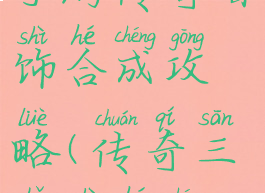 shì hé chéng gōng
饰合成攻
lüè chuán qí sān
略(传奇三